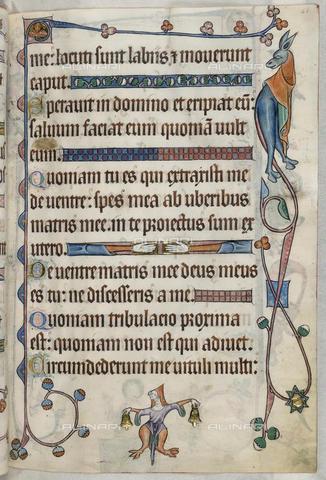 me: locuti sunt labiis ⁊ moverunt
caput.
Speravit in domino et eripiat eū:
salvum faciat eum quoniā vult
eum.
Quoniam tu es qui extraxisti me
de ventre: spes mea ab uberibus
matris mee. in te proiectus sum ex
utero.
De ventre matris mee deus meus
es tu: ne discesseris a me.
Quoniam tribulacio proxima
est: quoniam non est qui adiuvet.
Circumdederunt me vituli multi:
ALINARI
ALINARI
ALINARI
ALINARI